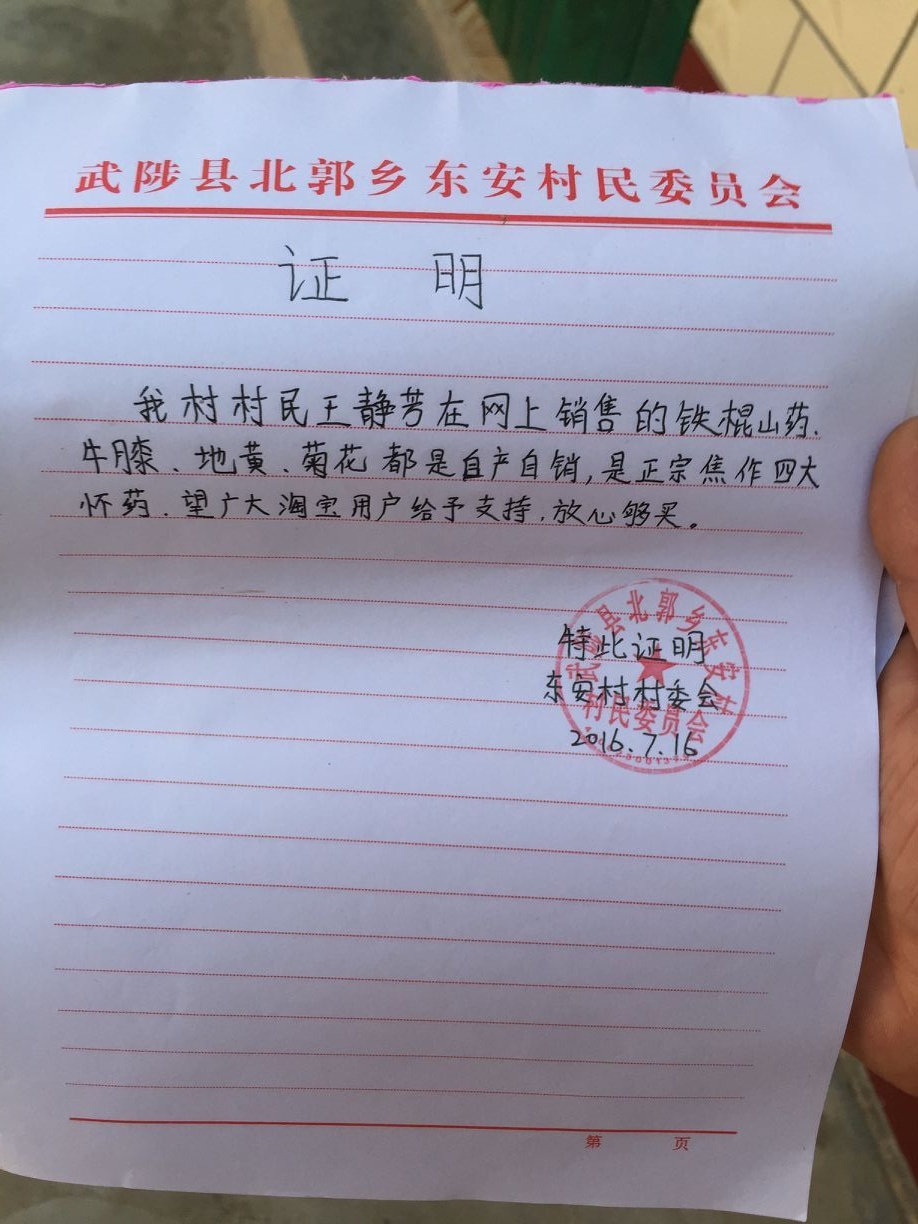 武陟县北郭乡东安村民委员会
证 明
我村村民王静芳在网上销售的铁棍山药、
牛膝、地黄、菊花都是自产自销,是正宗焦作四大
怀药、望广大淘宝用户给予支持,放心够买。
特此证明
东安村村委会
2016.7.16
武陟县北郭乡东安村
村民委员会
第 页